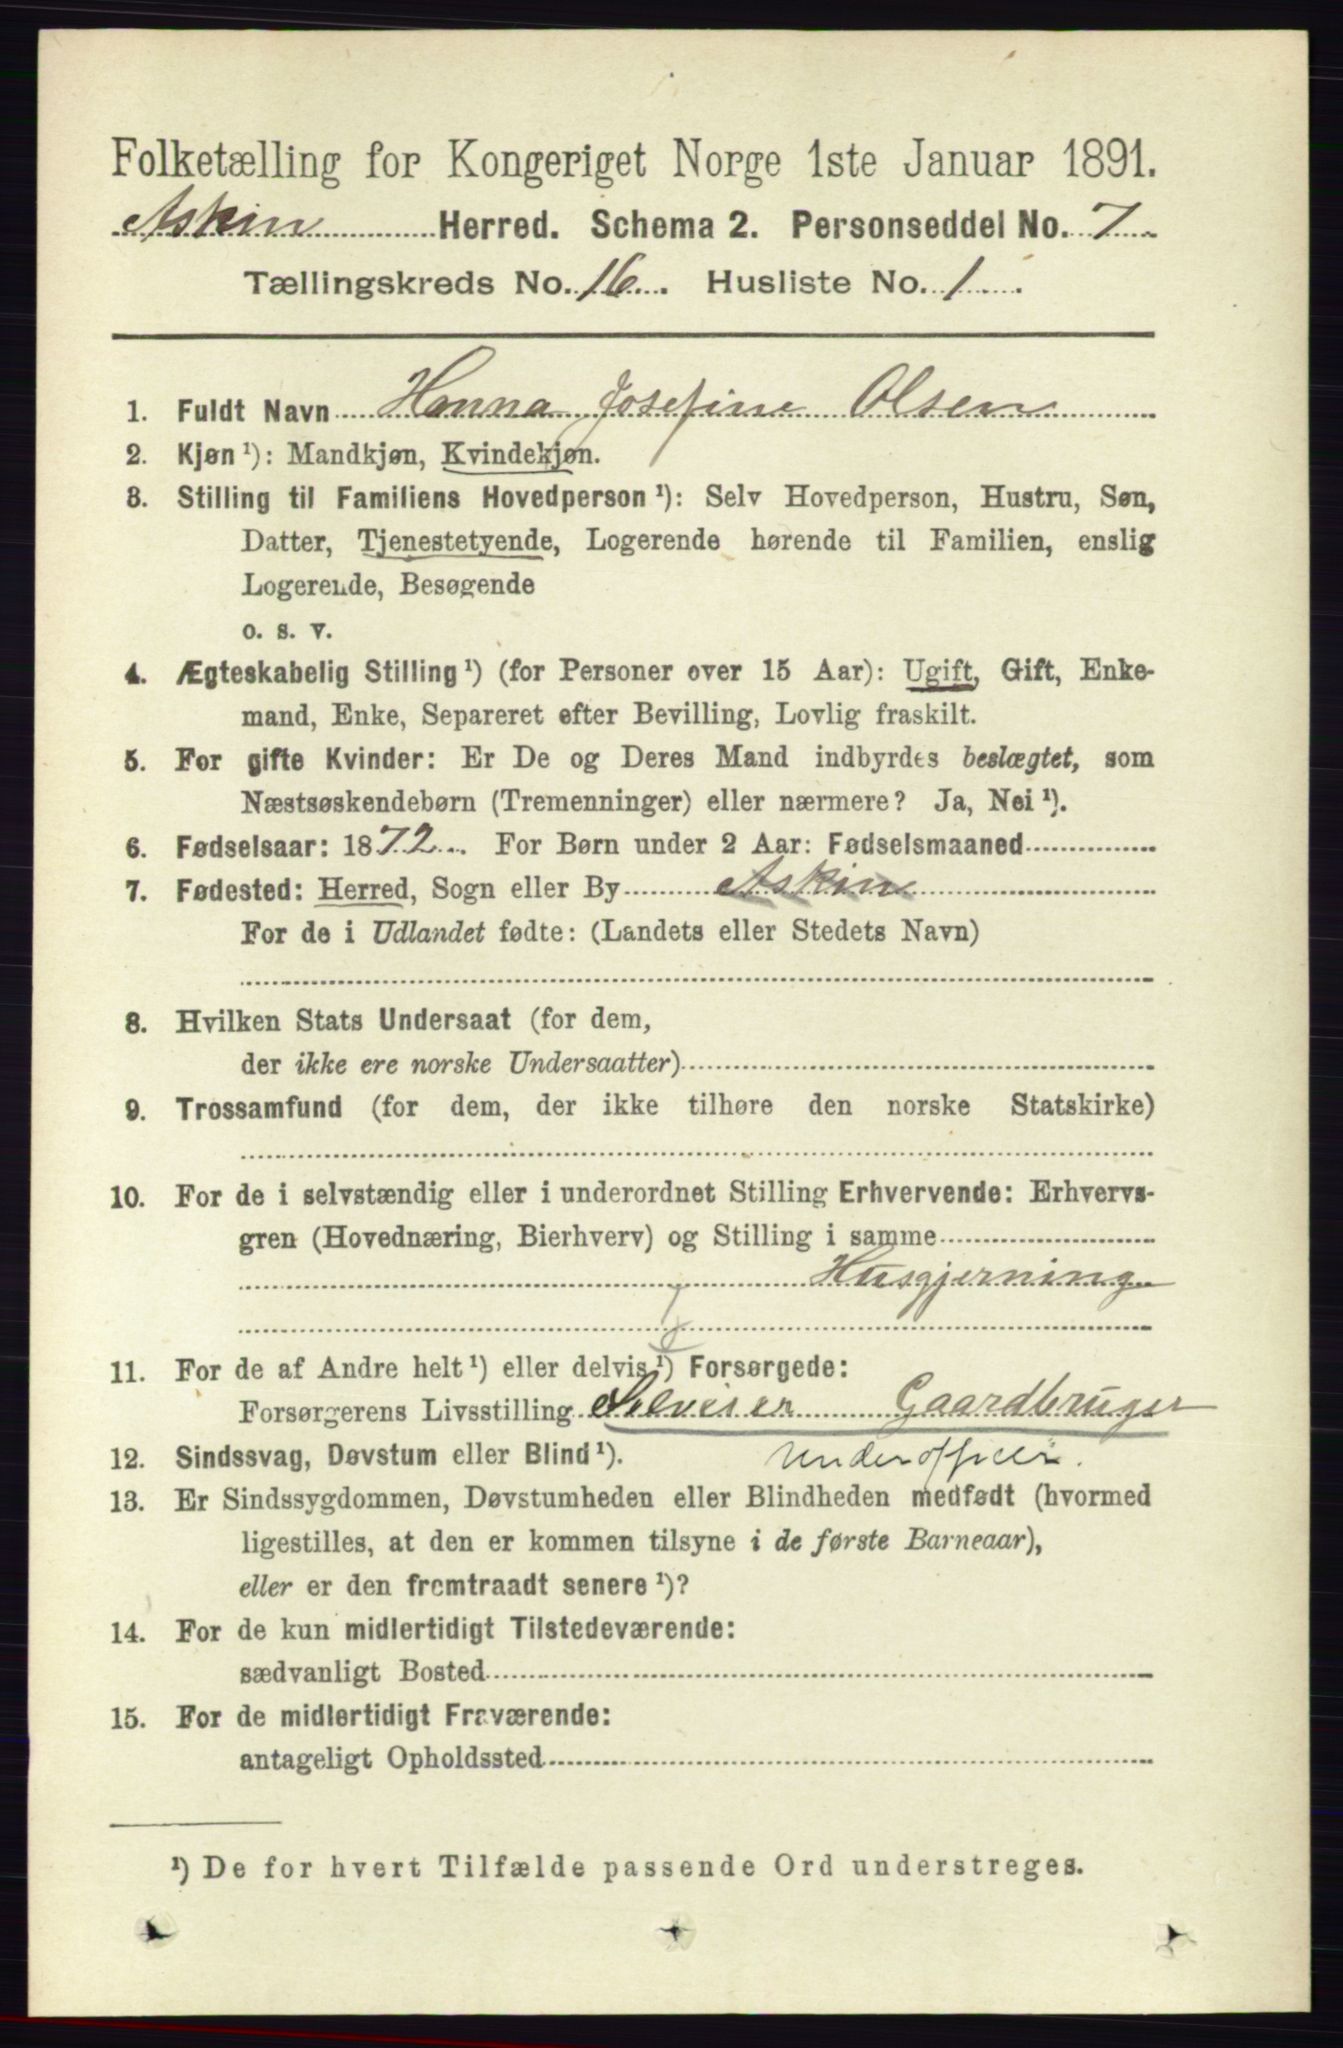 Folketælling for Kongeriget Norge 1ste Januar 1891.
Askim Herred. Schema 2. Personseddel No. 7
Tællingskreds No. 16. Husliste No. 1
1. Fuldt Navn Hanna Josefine Olsen
2. Kjøn ¹): Mandkjøn, Kvindekjøn.
3. Stilling til Familiens Hovedperson ¹): Selv Hovedperson, Hustru, Søn,
Datter, Tjenestetyende, Logerende hørende til Familien, enslig
Logerende, Besøgende
o. s. v.
4. Ægteskabelig Stilling ¹) (for Personer over 15 Aar): Ugift, Gift, Enke-
mand, Enke, Separeret efter Bevilling, Lovlig fraskilt.
5. For gifte Kvinder: Er De og Deres Mand indbyrdes beslægtet, som
Næstsøskendebørn (Tremenninger) eller nærmere? Ja, Nei ¹).
6. Fødselsaar: 1872. For Børn under 2 Aar: Fødselsmaaned
7. Fødested: Herred, Sogn eller By Askim
For de i Udlandet fødte: (Landets eller Stedets Navn)
8. Hvilken Stats Undersaat (for dem,
der ikke ere norske Undersaatter)
9. Trossamfund (for dem, der ikke tilhøre den norske Statskirke)
10. For de i selvstændig eller i underordnet Stilling Erhvervende: Erhvervs-
gren (Hovednæring, Bierhverv) og Stilling i samme
Husgjerning
11. For de af Andre helt ¹) eller delvis ¹) Forsørgede:
Forsørgerens Livsstilling Selveier Gaardbruger
12. Sindssvag, Døvstum eller Blind ¹). Underofficer.
13. Er Sindssygdommen, Døvstumheden eller Blindheden medfødt (hvormed
ligestilles, at den er kommen tilsyne i de første Barneaar),
eller er den fremtraadt senere ¹)?
14. For de kun midlertidigt Tilstedeværende:
sædvanligt Bosted
15. For de midlertidigt Fraværende:
antageligt Opholdssted
¹) De for hvert Tilfælde passende Ord understreges.